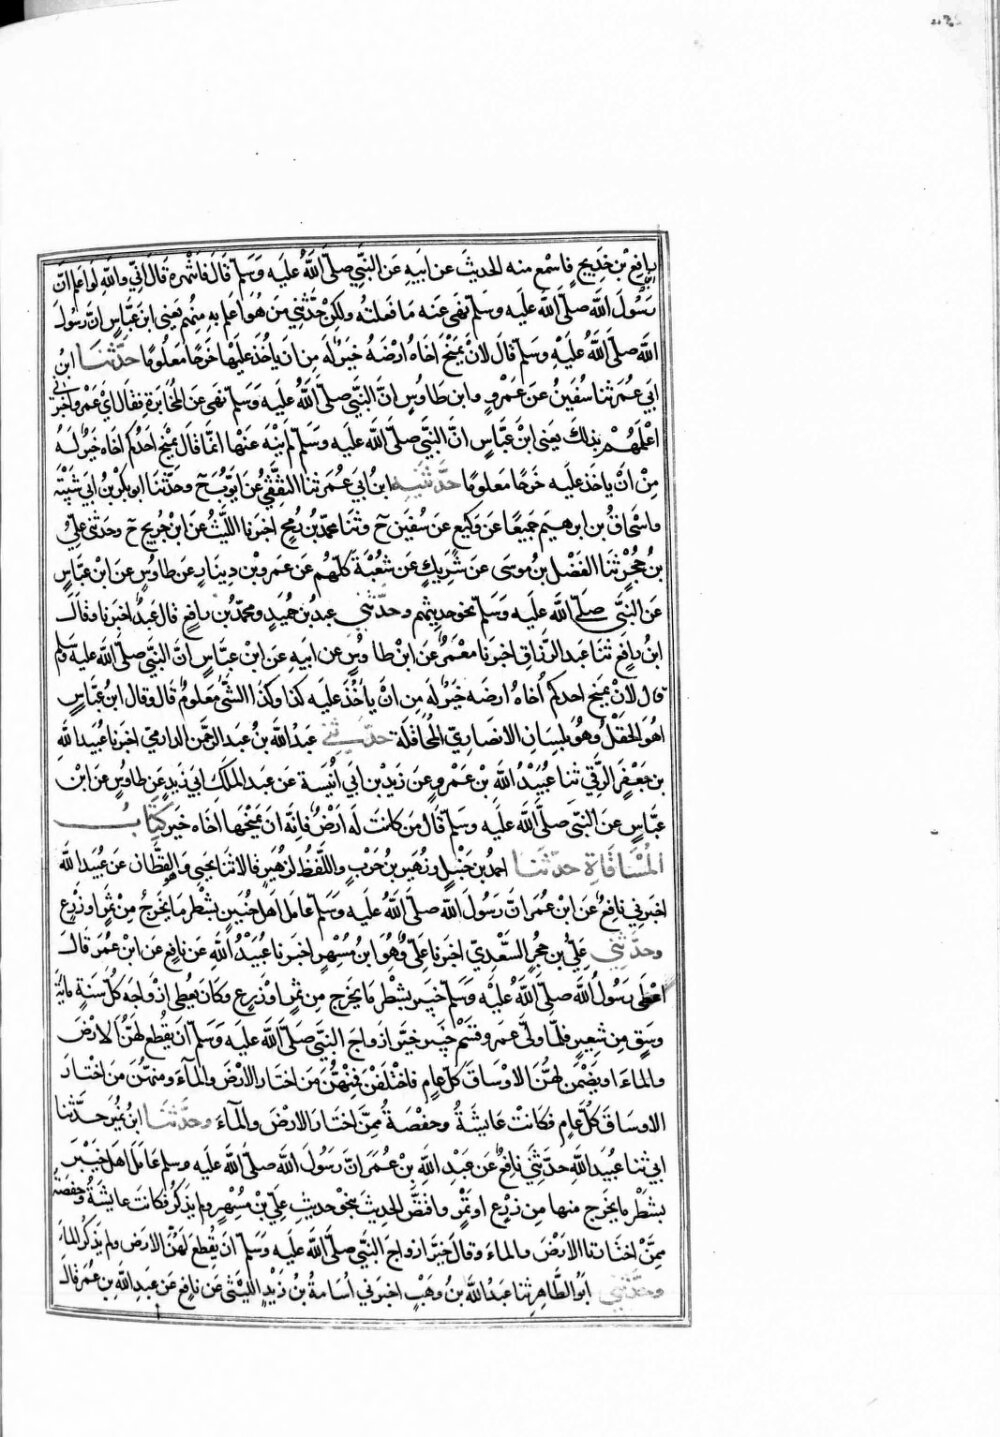 رافع بن خديج فاسمع منه الحديث عن ابيه عن النبي صلى الله عليه وسلم قال فانتهره قال اني والله لو اعلم ان
رسول الله صلى الله عليه وسلم نهى عنه ما فعلته ولكن حدثني من هو اعلم به منهم يعني ابن عباس ان رسول
الله صلى الله عليه وسلم قال لان يمنح اخاه ارضه خير له من ان ياخذ عليها خرجا معلوما حدثنا ابن
ابي عمر ثنا سفين عن عمرو وابن طاوس ان النبي صلى الله عليه وسلم نهى عن المخابرة فقال اي عمرو اخبرني
اعلمهم بذلك يعني ابن عباس ان النبي صلى الله عليه وسلم لم ينه عنها انما قال يمنح احدكم اخاه خير له
من ان ياخذ عليه خرجا معلوما حدثنيه ابن ابي عمر ثنا الثقفي عن ايوب ح وحدثنا ابو بكر بن ابي شيبة
واسحاق بن ابرهيم جميعا عن وكيع عن سفين ح وثنا محمد بن رمح اخبرنا الليث عن ابن جريج ح وحدثني علي
بن حجر ثنا الفضل بن موسى عن شريك عن شعبة كلهم عن عمرو بن دينار عن طاوس عن ابن عباس
عن النبي صلى الله عليه وسلم نحو حديثهم وحدثني عبد بن حميد ومحمد بن رافع قال عبد اخبرنا وقال
ابن رافع ثنا عبد الرزاق اخبرنا معمر عن ابن طاوس عن ابيه عن ابن عباس ان النبي صلى الله عليه وسلم
قال لان يمنح احدكم اخاه ارضه خير له من ان ياخذ عليه كذا وكذا الشئ معلوم قال وقال ابن عباس
هو الحقل وهو بلسان الانصار المحاقلة حدثني عبد الله بن عبد الرحمن الدارمي اخبرنا عبيد الله
بن جعفر الرقي ثنا عبيد الله بن عمرو عن زيد بن ابي انيسة عن عبد الملك ابي زيد عن طاوس عن ابن
عباس عن النبي صلى الله عليه وسلم قال من كانت له ارض فانه ان يمنحها اخاه خير كتاب
المساقاة حدثنا احمد بن حنبل وزهير بن حرب واللفظ لزهير قالا ثنا يحيى وهو القطان عن عبيد الله
اخبرني نافع عن ابن عمر ان رسول الله صلى الله عليه وسلم عامل اهل خيبر بشطر ما يخرج من ثمر او زرع
وحدثني علي بن حجر السعدي اخبرنا علي وهو ابن مسهر اخبرنا عبيد الله عن نافع عن ابن عمر قال
اعطى رسول الله صلى الله عليه وسلم خيبر بشطر ما يخرج من ثمر او زرع وكان يعطي ازواجه كل سنة ماية
وسق من شعير فلما ولى عمر وقسم خيبر خير ازواج النبي صلى الله عليه وسلم ان يقطع لهن الارض
والماء او يضمن لهن الاوساق كل عام فاختلفن فمنهن من اختار الارض والماء ومنهن من اختار
الاوساق كل عام فكانت عايشة وحفصة ممن اختار الارض والماء وحدثنا ابن نمير حدثنا
ابي ثنا عبيد الله حدثني نافع عن عبد الله بن عمر ان رسول الله صلى الله عليه وسلم عامل اهل خيبر
بشطر ما يخرج منها من زرع او ثمر واقتص الحديث بنحو حديث علي بن مسهر ولم يذكر فكانت عايشة وحفصة
ممن اختارتا الارض والماء وقال خير ازواج النبي صلى الله عليه وسلم ان يقطع لهن الارض ولم يذكر الماء
وحدثني ابو الطاهر ثنا عبد الله بن وهب اخبرني اسامة بن زيد الليثي عن نافع عن عبد الله بن عمر قال